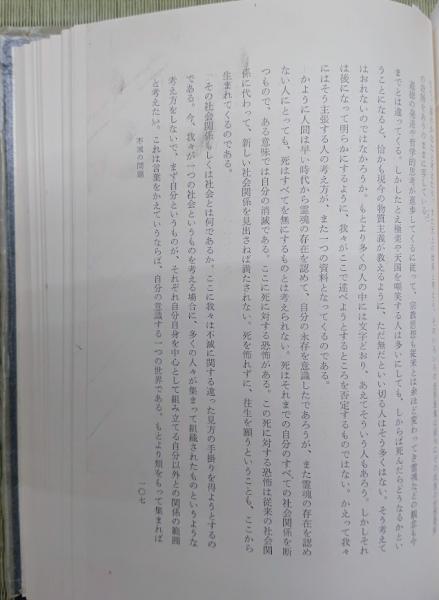 道徳の発達や哲学的思考が進歩してくるに従って、宗教思想も従来とは余ほど変わってき霊魂などの観念も今
までとは違ってくる。しかしたとえ極楽や天国を嘲笑する人は多いにしても、しからば死んだらどうなるかとい
うことになると、恰かも現今の物質主義が教えるように、ただ無だといい切る人はそう多くはない。そう考えて
はおれないのではなかろうか。もとより多くの人の中には文字どおり、あえてそういう人もあろう。しかしそれ
は後になって明らかにするように、我々がここで述べようとするところを否定するものではない。かえって我々
にはそう主張する人の考え方が、また一つの資料となってくるのである。
かように人間は早い時代から霊魂の存在を認めて、自分の永存を意識したであろうが、また霊魂の存在を認め
ない人にとっても、死はすべてを無にするものとは考えられない。死はそれまでの自分のすべての社会関係を断
つもので、ある意味では自分の消滅である。ここに死に対する恐怖がある。この死に対する恐怖は従来の社会関
係に代わって、新しい社会関係を見出さねば満たされない。死を怖れずに、往生を願うということも、ここから
生まれてくるのである。
その社会関係もしくは社会とは何であるか。ここに我々は不滅に関する違った見方の手掛りを得ようとするの
である。今、我々が一つの社会というものを考える場合に、多くの人々が集まって組織されたものというような
考え方をしないで、まず自分というものが、それぞれ自分自身を中心として組み立てる自分以外との関係の範囲
と考えたい。これは言葉をかえていうならば、自分の意識する一つの世界である。もとより類をもって集まれば
不滅の問題
一〇七